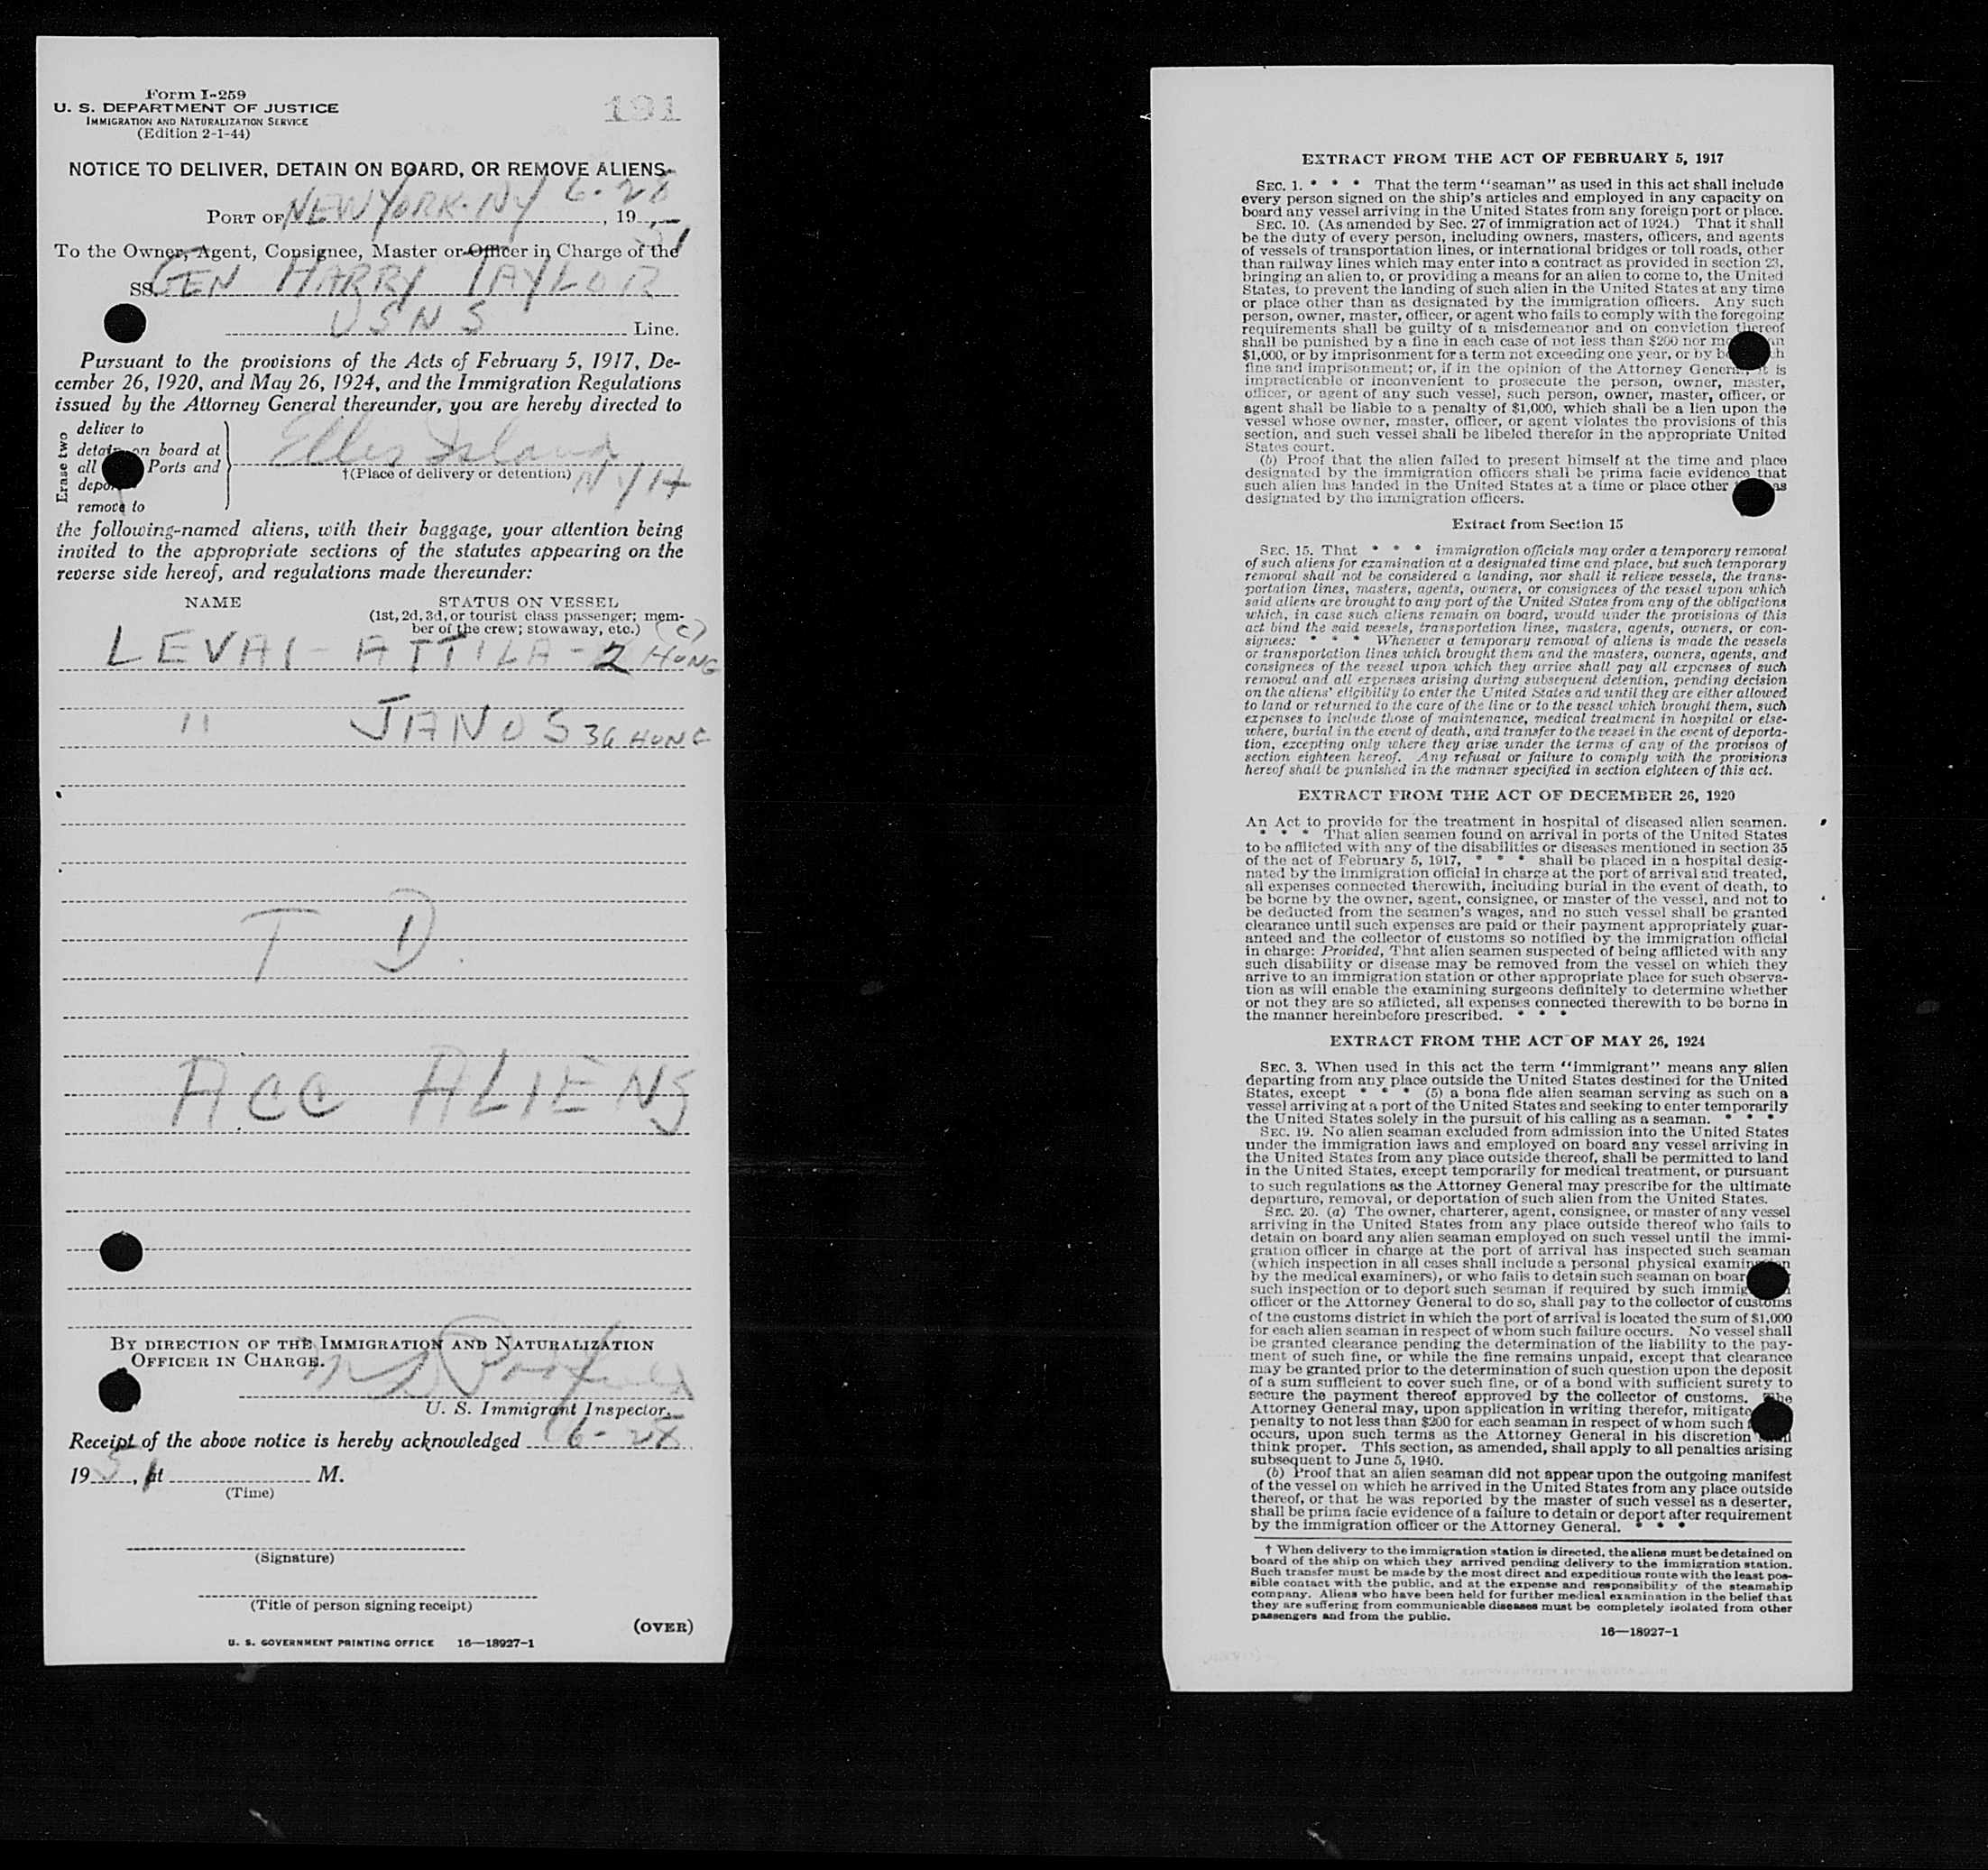 Form I-259
U. S. DEPARTMENT OF JUSTICE
IMMIGRATION AND NATURALIZATION SERVICE
(Edition 2-1-44)
191
NOTICE TO DELIVER, DETAIN ON BOARD, OR REMOVE ALIENS
PORT OF NEW YORK. NY 6-28, 1951
To the Owner, Agent, Consignee, Master or Officer in Charge of the
SS GEN HARRY TAYLOR
USNS Line.
Pursuant to the provisions of the Acts of February 5, 1917, De-
cember 26, 1920, and May 26, 1924, and the Immigration Regulations
issued by the Attorney General thereunder, you are hereby directed to
Erase two
deliver to
detain on board at
all Ports and
deport
remove to
Ellis Island
†(Place of delivery or detention) NYH
the following-named aliens, with their baggage, your attention being
invited to the appropriate sections of the statutes appearing on the
reverse side hereof, and regulations made thereunder:
NAME STATUS ON VESSEL
(1st, 2d, 3d, or tourist class passenger; mem-
ber of the crew; stowaway, etc.) (C)
LEVAI - ATTILA - 2 HUNG
" JANOS 36 HUNG
T D.
ACC ALIENS
BY DIRECTION OF THE IMMIGRATION AND NATURALIZATION
OFFICER IN CHARGE.
U. S. Immigrant Inspector.
Receipt of the above notice is hereby acknowledged 6-28
1951, at M.
(Time)
(Signature)
(Title of person signing receipt)
(OVER)
U. S. GOVERNMENT PRINTING OFFICE 16—18927-1
EXTRACT FROM THE ACT OF FEBRUARY 5, 1917
SEC. 1. * * * That the term "seaman" as used in this act shall include
every person signed on the ship's articles and employed in any capacity on
board any vessel arriving in the United States from any foreign port or place.
SEC. 10. (As amended by Sec. 27 of immigration act of 1924.) That it shall
be the duty of every person, including owners, masters, officers, and agents
of vessels of transportation lines, or international bridges or toll roads, other
than railway lines which may enter into a contract as provided in section 23,
bringing an alien to, or providing a means for an alien to come to, the United
States, to prevent the landing of such alien in the United States at any time
or place other than as designated by the immigration officers. Any such
person, owner, master, officer, or agent who fails to comply with the foregoing
requirements shall be guilty of a misdemeanor and on conviction thereof
shall be punished by a fine in each case of not less than $200 nor
$1,000, or by imprisonment for a term not exceeding one year, or by
fine and imprisonment; or, if in the opinion of the Attorney General, it is
impracticable or inconvenient to prosecute the person, owner, master,
officer, or agent of any such vessel, such person, owner, master, officer, or
agent shall be liable to a penalty of $1,000, which shall be a lien upon the
vessel whose owner, master, officer, or agent violates the provisions of this
section, and such vessel shall be libeled therefor in the appropriate United
States court.
(b) Proof that the alien failed to present himself at the time and place
designated by the immigration officers shall be prima facie evidence that
such alien has landed in the United States at a time or place other as
designated by the immigration officers.
Extract from Section 15
SEC. 15. That * * * immigration officials may order a temporary removal
of such aliens for examination at a designated time and place, but such temporary
removal shall not be considered a landing, nor shall it relieve vessels, the trans-
portation lines, masters, agents, owners, or consignees of the vessel upon which
said aliens are brought to any port of the United States from any of the obligations
which, in case such aliens remain on board, would under the provisions of this
act bind the said vessels, transportation lines, masters, agents, owners, or con-
signees: * * * Whenever a temporary removal of aliens is made the vessels
or transportation lines which brought them and the masters, owners, agents, and
consignees of the vessel upon which they arrive shall pay all expenses of such
removal and all expenses arising during subsequent detention, pending decision
on the aliens' eligibility to enter the United States and until they are either allowed
to land or returned to the care of the line or to the vessel which brought them, such
expenses to include those of maintenance, medical treatment in hospital or else-
where, burial in the event of death, and transfer to the vessel in the event of deporta-
tion, excepting only where they arise under the terms of any of the provisos of
section eighteen hereof. Any refusal or failure to comply with the provisions
hereof shall be punished in the manner specified in section eighteen of this act.
EXTRACT FROM THE ACT OF DECEMBER 26, 1920
An Act to provide for the treatment in hospital of diseased alien seamen.
* * * That alien seamen found on arrival in ports of the United States
to be afflicted with any of the disabilities or diseases mentioned in section 35
of the act of February 5, 1917, * * * shall be placed in a hospital desig-
nated by the immigration official in charge at the port of arrival and treated,
all expenses connected therewith, including burial in the event of death, to
be borne by the owner, agent, consignee, or master of the vessel, and not to
be deducted from the seamen's wages, and no such vessel shall be granted
clearance until such expenses are paid or their payment appropriately guar-
anteed and the collector of customs so notified by the immigration official
in charge: Provided, That alien seamen suspected of being afflicted with any
such disability or disease may be removed from the vessel on which they
arrive to an immigration station or other appropriate place for such observa-
tion as will enable the examining surgeons definitely to determine whether
or not they are so afflicted, all expenses connected therewith to be borne in
the manner hereinbefore prescribed. * * *
EXTRACT FROM THE ACT OF MAY 26, 1924
SEC. 3. When used in this act the term "immigrant" means any alien
departing from any place outside the United States destined for the United
States, except * * * (5) a bona fide alien seaman serving as such on a
vessel arriving at a port of the United States and seeking to enter temporarily
the United States solely in the pursuit of his calling as a seaman. * * *
SEC. 19. No alien seaman excluded from admission into the United States
under the immigration laws and employed on board any vessel arriving in
the United States from any place outside thereof, shall be permitted to land
in the United States, except temporarily for medical treatment, or pursuant
to such regulations as the Attorney General may prescribe for the ultimate
departure, removal, or deportation of such alien from the United States.
SEC. 20. (a) The owner, charterer, agent, consignee, or master of any vessel
arriving in the United States from any place outside thereof who fails to
detain on board any alien seaman employed on such vessel until the immi-
gration officer in charge at the port of arrival has inspected such seaman
(which inspection in all cases shall include a personal physical examination
by the medical examiners), or who fails to detain such seaman on board
such inspection or to deport such seaman if required by such
officer or the Attorney General to do so, shall pay to the collector of customs
of the customs district in which the port of arrival is located the sum of $1,000
for each alien seaman in respect of whom such failure occurs. No vessel shall
be granted clearance pending the determination of the liability to the pay-
ment of such fine, or while the fine remains unpaid, except that clearance
may be granted prior to the determination of such question upon the deposit
of a sum sufficient to cover such fine, or of a bond with sufficient surety to
secure the payment thereof approved by the collector of customs. The
Attorney General may, upon application in writing therefor, mitigate
penalty to not less than $200 for each seaman in respect of whom such
occurs, upon such terms as the Attorney General in his discretion
think proper. This section, as amended, shall apply to all penalties arising
subsequent to June 5, 1940.
(b) Proof that an alien seaman did not appear upon the outgoing manifest
of the vessel on which he arrived in the United States from any place outside
thereof, or that he was reported by the master of such vessel as a deserter,
shall be prima facie evidence of a failure to detain or deport after requirement
by the immigration officer or the Attorney General. * * *
† When delivery to the immigration station is directed, the aliens must be detained on
board of the ship on which they arrived pending delivery to the immigration station.
Such transfer must be made by the most direct and expeditious route with the least pos-
sible contact with the public, and at the expense and responsibility of the steamship
company. Aliens who have been held for further medical examination in the belief that
they are suffering from communicable diseases must be completely isolated from other
passengers and from the public.
16—18927-1